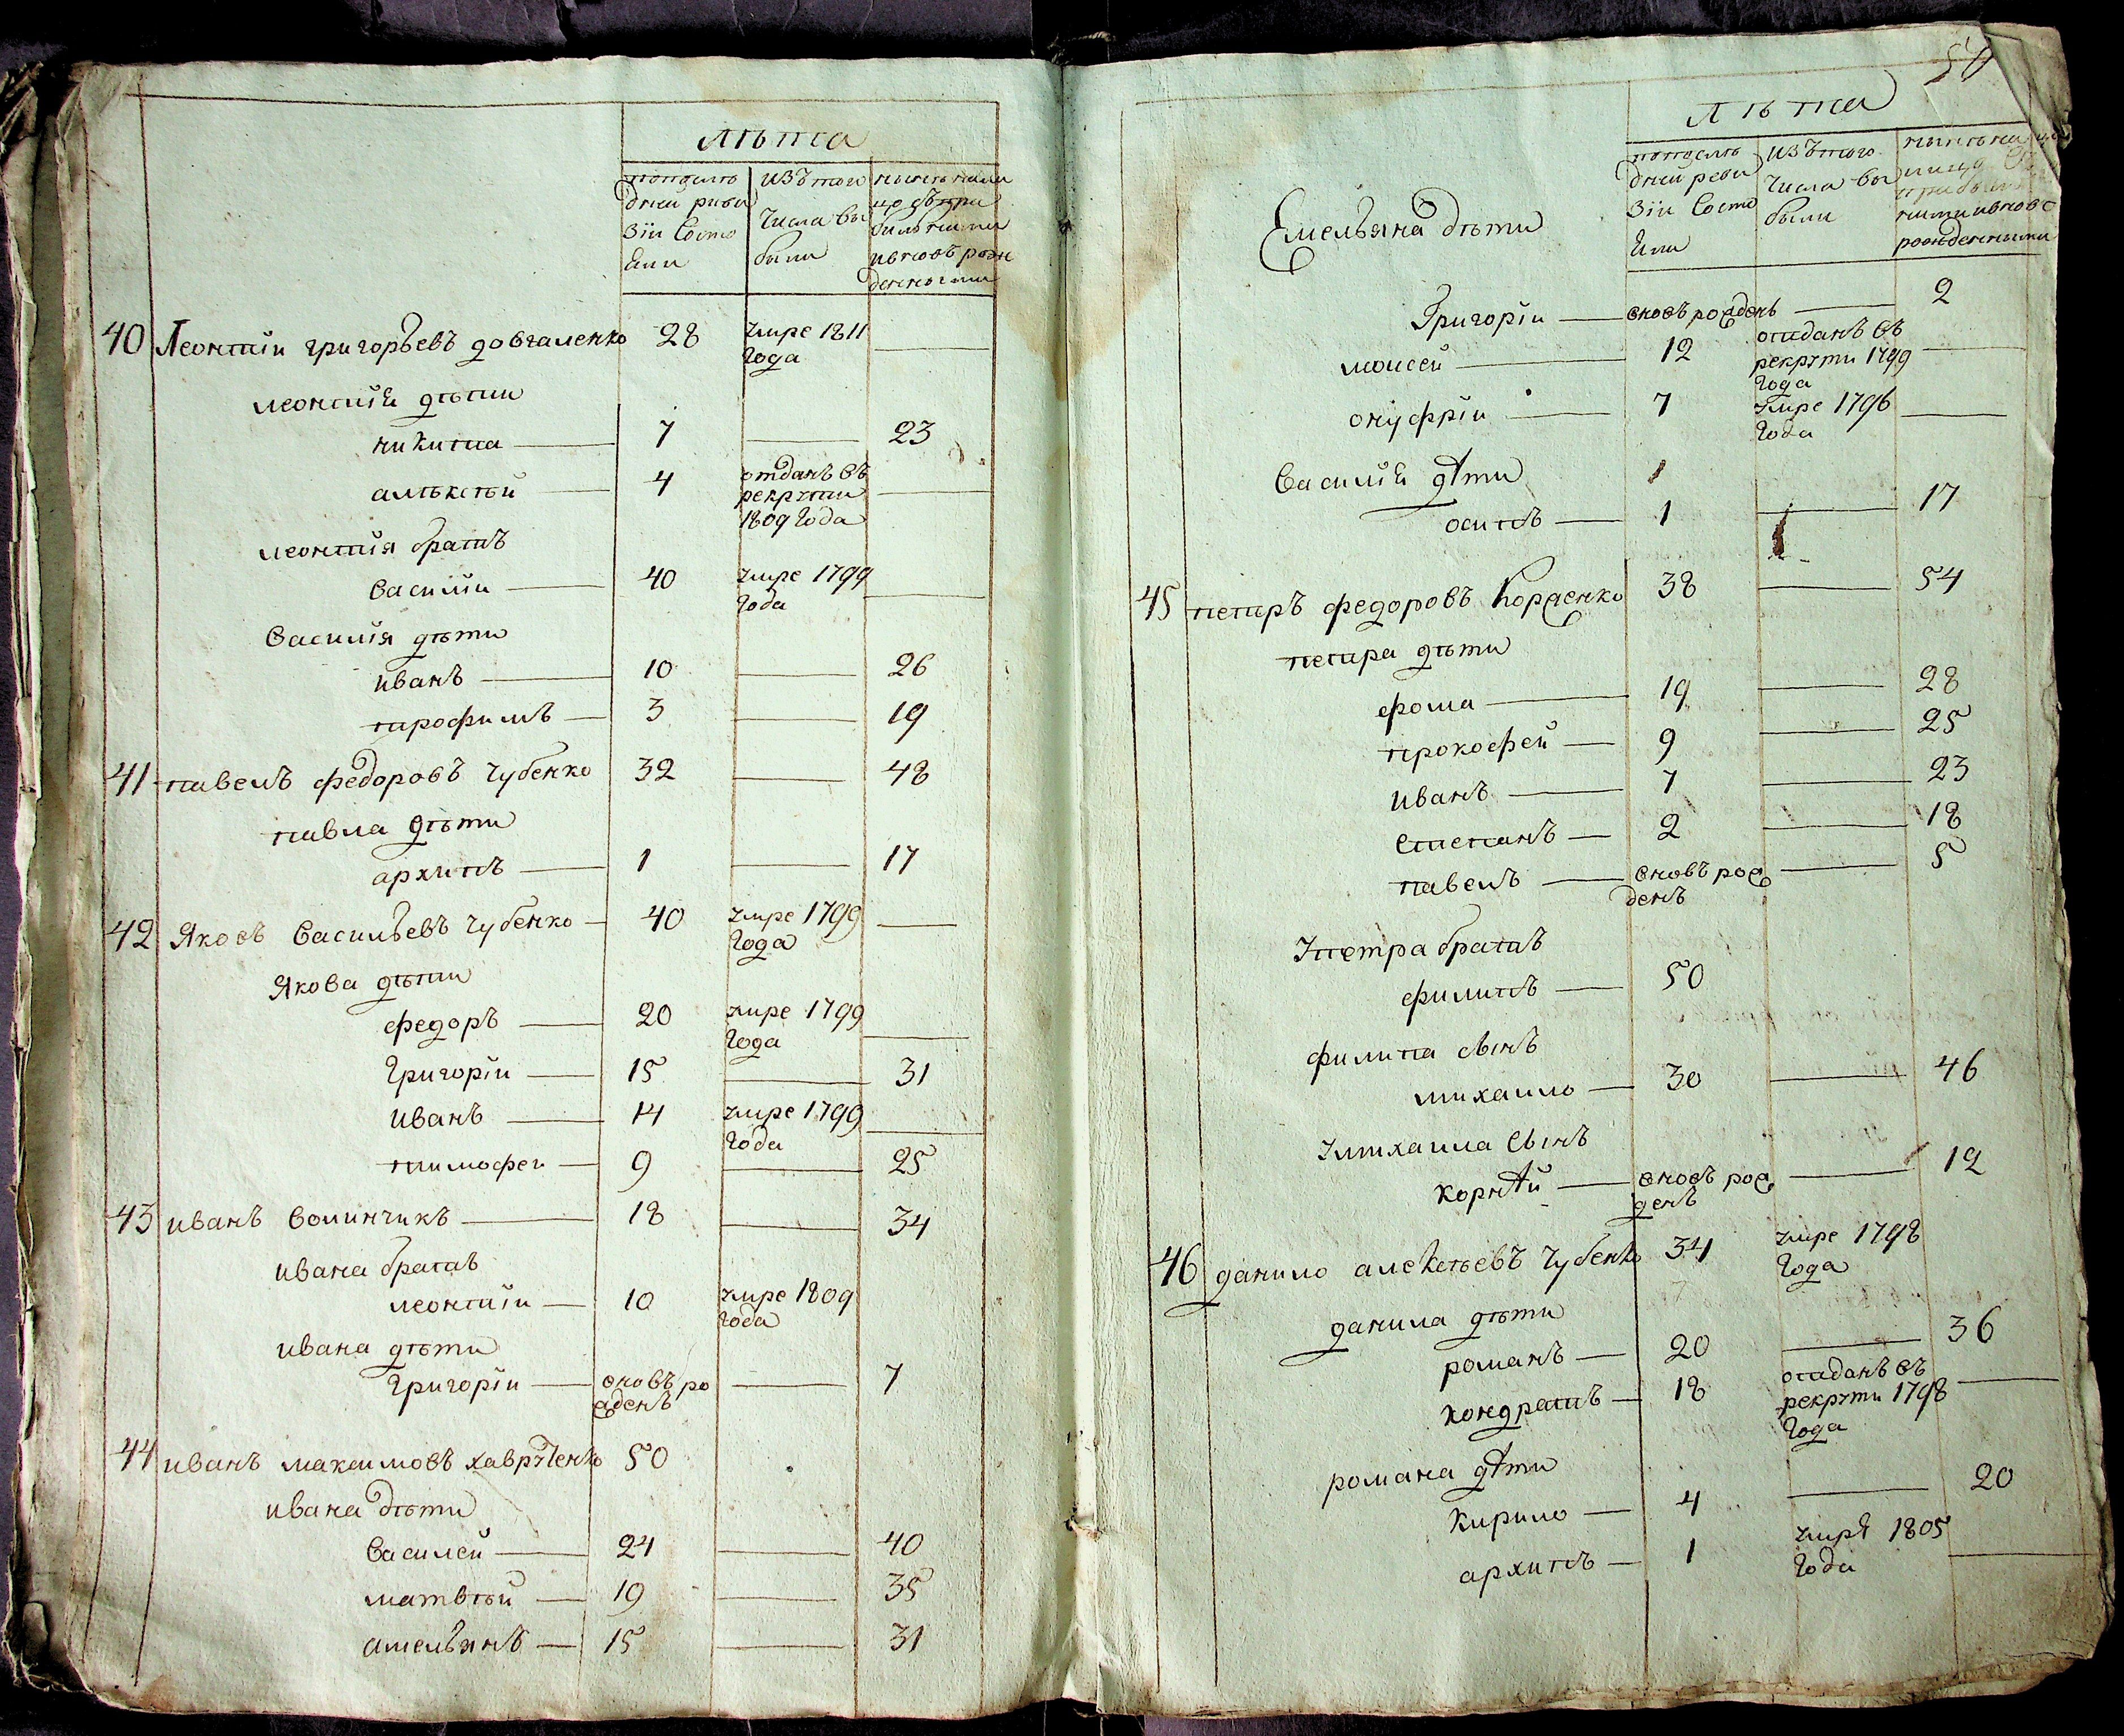 лѣта
попослѣ дней реви зіи Состо яли
изъ того числа вы были
нынѣ нали цо съ при былыми ивновъ рож денными
40 Леонтій григорьевъ довгаленко 28 умре 1811 года —
леонтія дѣти
никита — 7 — 23
алѣксѣй — 4 отданъ въ рекруты 1809 года —
леонтія братъ
василій — 40 умре 1799 года —
василія дѣти
иванъ — 10 — 26
трофимъ — 3 — 19
41 павелъ федоровъ чубенко 32 — 48
павла дѣти
архипъ — 1 — 17
42 Яковъ васильевъ чубенко — 40 умре 1799 года —
Якова дѣти
федоръ — 20 умре 1799 года —
григорій — 15 — 31
иванъ — 14 умре 1799 года —
тимофей — 9 — 25
43 иванъ волинчикъ — 18 — 34
ивана братъ
леонтій — 10 умре 1809 года
ивана дѣти
григорій — вновъ ро жденъ — 7
44 иванъ максимовъ хаврученко 50
ивана дѣти
василей — 24 — 40
матвѣй — 19 — 35
амельянъ — 15 — 31
50
лѣта
попослѣ дней реви зіи Состо яли
изъ того числа вы были
нынѣ на ными ивновъ рожденными
Емельяна дѣти
Григорій — вновъ рожденъ — 2
моисей — 12 отданъ въ рекруты 1799 года —
онуфрій — 7 умре 1796 года —
василія дѣти
осипъ — 1 — 17
45 петръ федоровъ Корженко 38 — 54
петра дѣти
фома — 19 — 28
прокофей — 9 — 25
иванъ — 7 — 23
степанъ — 2 — 18
павелъ — вновъ рож денъ — 5
Упетра братъ
филипъ — 50
филипа сынъ
михаило — 30 — 46
Умихаила сынъ
корнѣй — вновъ рож денъ — 12
46 данило алексѣевъ чубенко 34 умре 1798 года
данила дѣти
романъ — 20 — 36
кондратъ — 18 отданъ въ рекруты 1798 года —
романа дѣти
кирило — 4 — 20
архипъ — 1 умрѣ 1805 года —